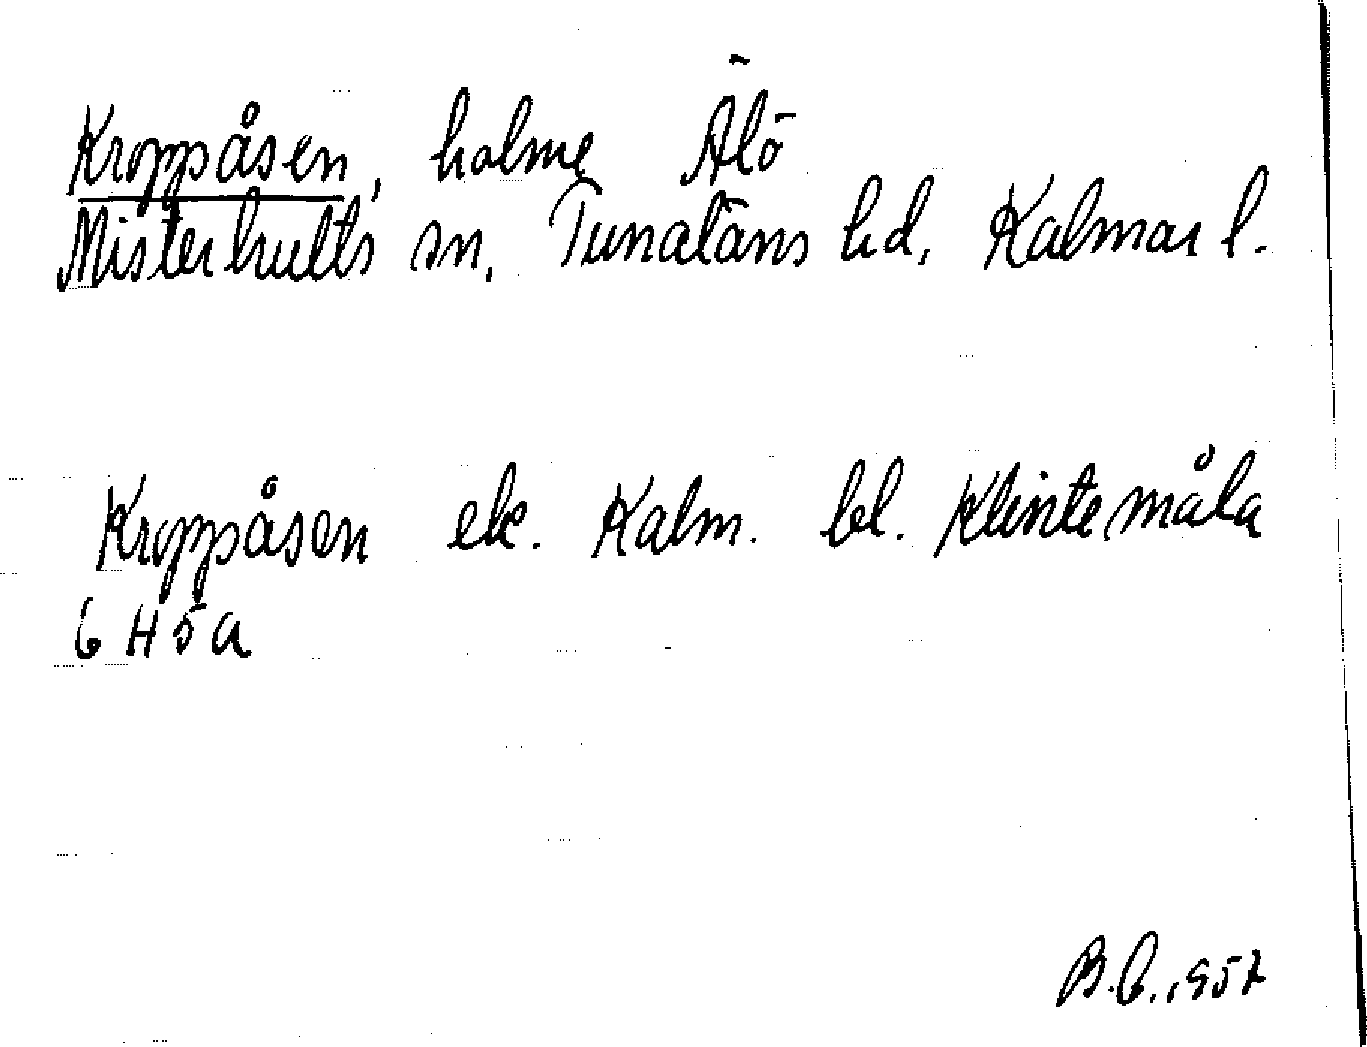 Kroppåsen, holme Älö
Misterhults sn, Tunaläns hd, Kalmar l.
Kroppåsen ek. Kalm. bl. Klintemåla
6 H 5 a
B.C., 957